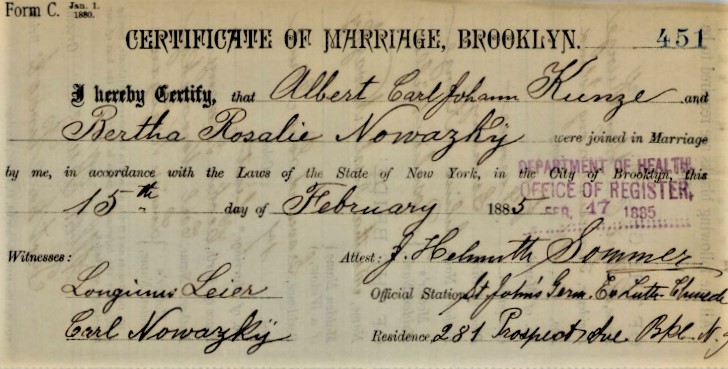 Form C. Jan. 1. 1880.
CERTIFICATE OF MARRIAGE, BROOKLYN. 451
I hereby Certify, that Albert Carl Johann Kunze and
Bertha Rosalie Nowazky were joined in Marriage
by me, in accordance with the Laws of the State of New York, in the City of Brooklyn, this
DEPARTMENT OF HEALTH,
OFFICE OF REGISTER,
FEB. 17 1885
15th day of February 1885
Witnesses: Attest: J. Helmuth Sommer
Longinus Leier Official Station St John's Germ. Ev Luth. Church
Carl Nowazky Residence 281 Prospect Ave. Bkl. N.Y